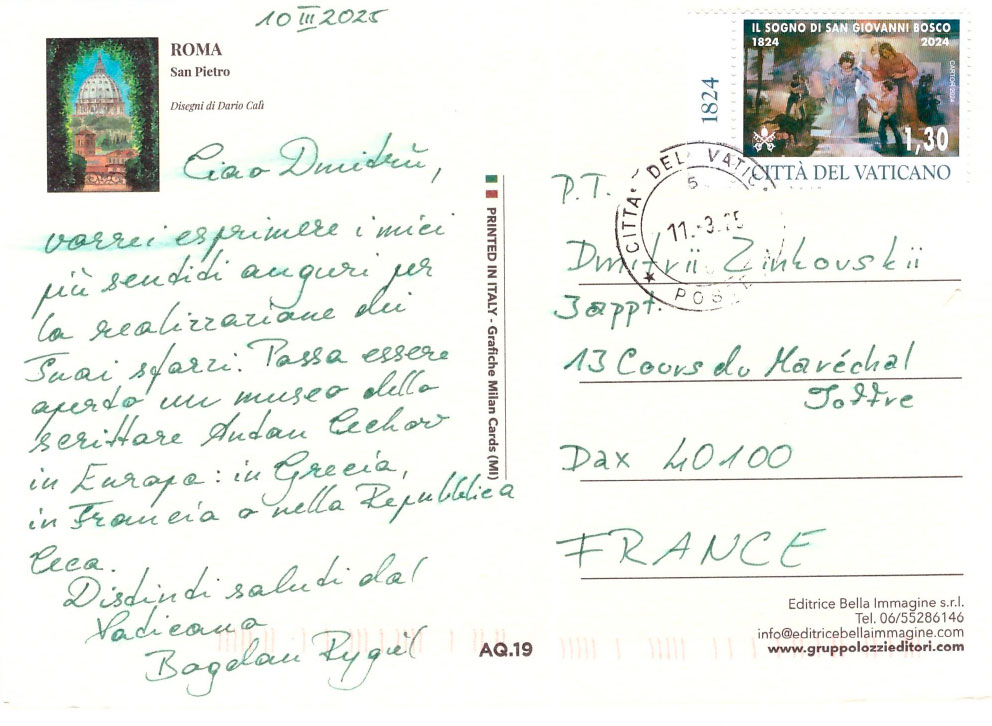 10 III 2025
ROMA
San Pietro
Disegni di Dario Calì
Ciao Dmitrii,
vorrei esprimere i miei
più sentidi auguri per
la realizzazione dei
Suoi sforzi. Possa essere
aperto un museo dello
scrittore Anton Cechov
in Europa: in Grecia,
in Francia o nella Repubblica
Ceca.
Distindi saludi dal
Vaticano
Bogdan
AQ.19
PRINTED IN ITALY - Grafiche Milan Cards (MI)
1824
IL SOGNO DI SAN GIOVANNI BOSCO
1824 2024
CARTOR 2024
1,30
CITTÀ DEL VATICANO
CITTA' DEL VATIC
11.-3.25
POSTE
P.T.
Dmitrii Zinkovskii
3 appt.
13 Cours du Maréchal
Joffre
Dax 40100
FRANCE
Editrice Bella Immagine s.r.l.
Tel. 06/55286146
info@editricebellaimmagine.com
www.gruppolozzieditori.com